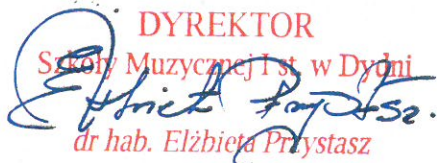 DYREKTOR
Szkoły Muzycznej I st. w Dydni
Elżbieta Przystasz.
dr hab. Elżbieta Przystasz